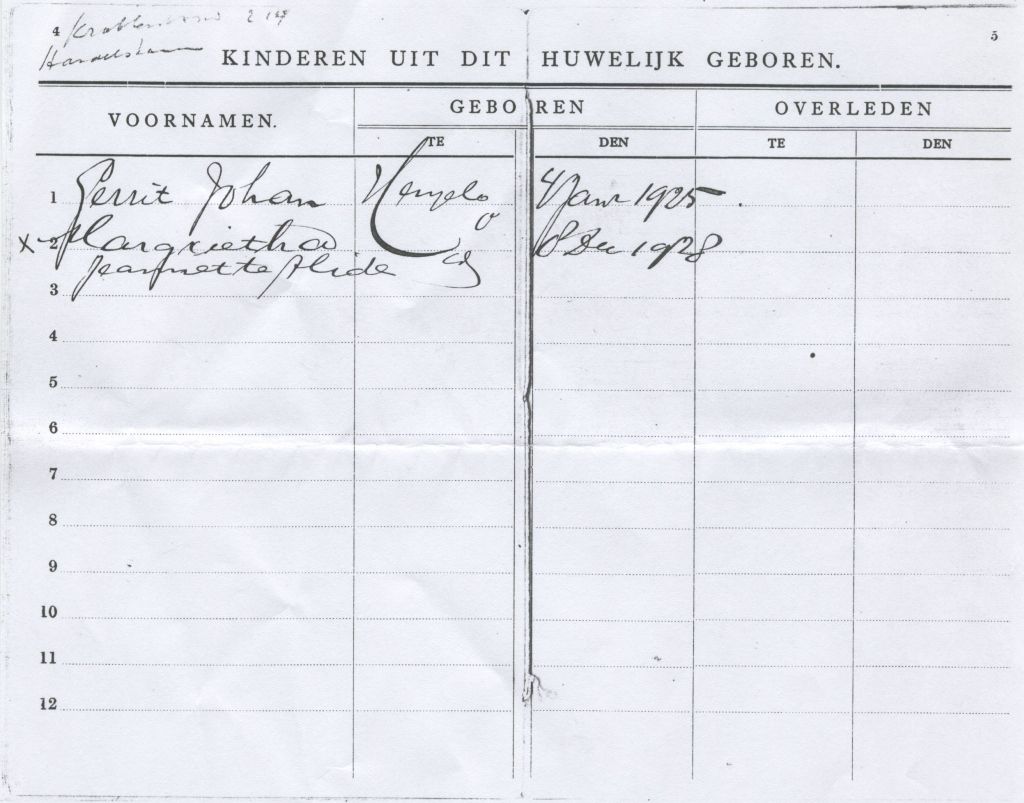 4
5
KINDEREN UIT DIT HUWELIJK GEBOREN.
VOORNAMEN.
GEBOREN
OVERLEDEN
TE
DEN
TE
DEN
1 Gerrit Johan Hengelo 4 Jan 1925
O
x 2 Margrietha 8 Dec 1928
Jeannette Alide
3
4
5
6
7
8
9
10
11
12